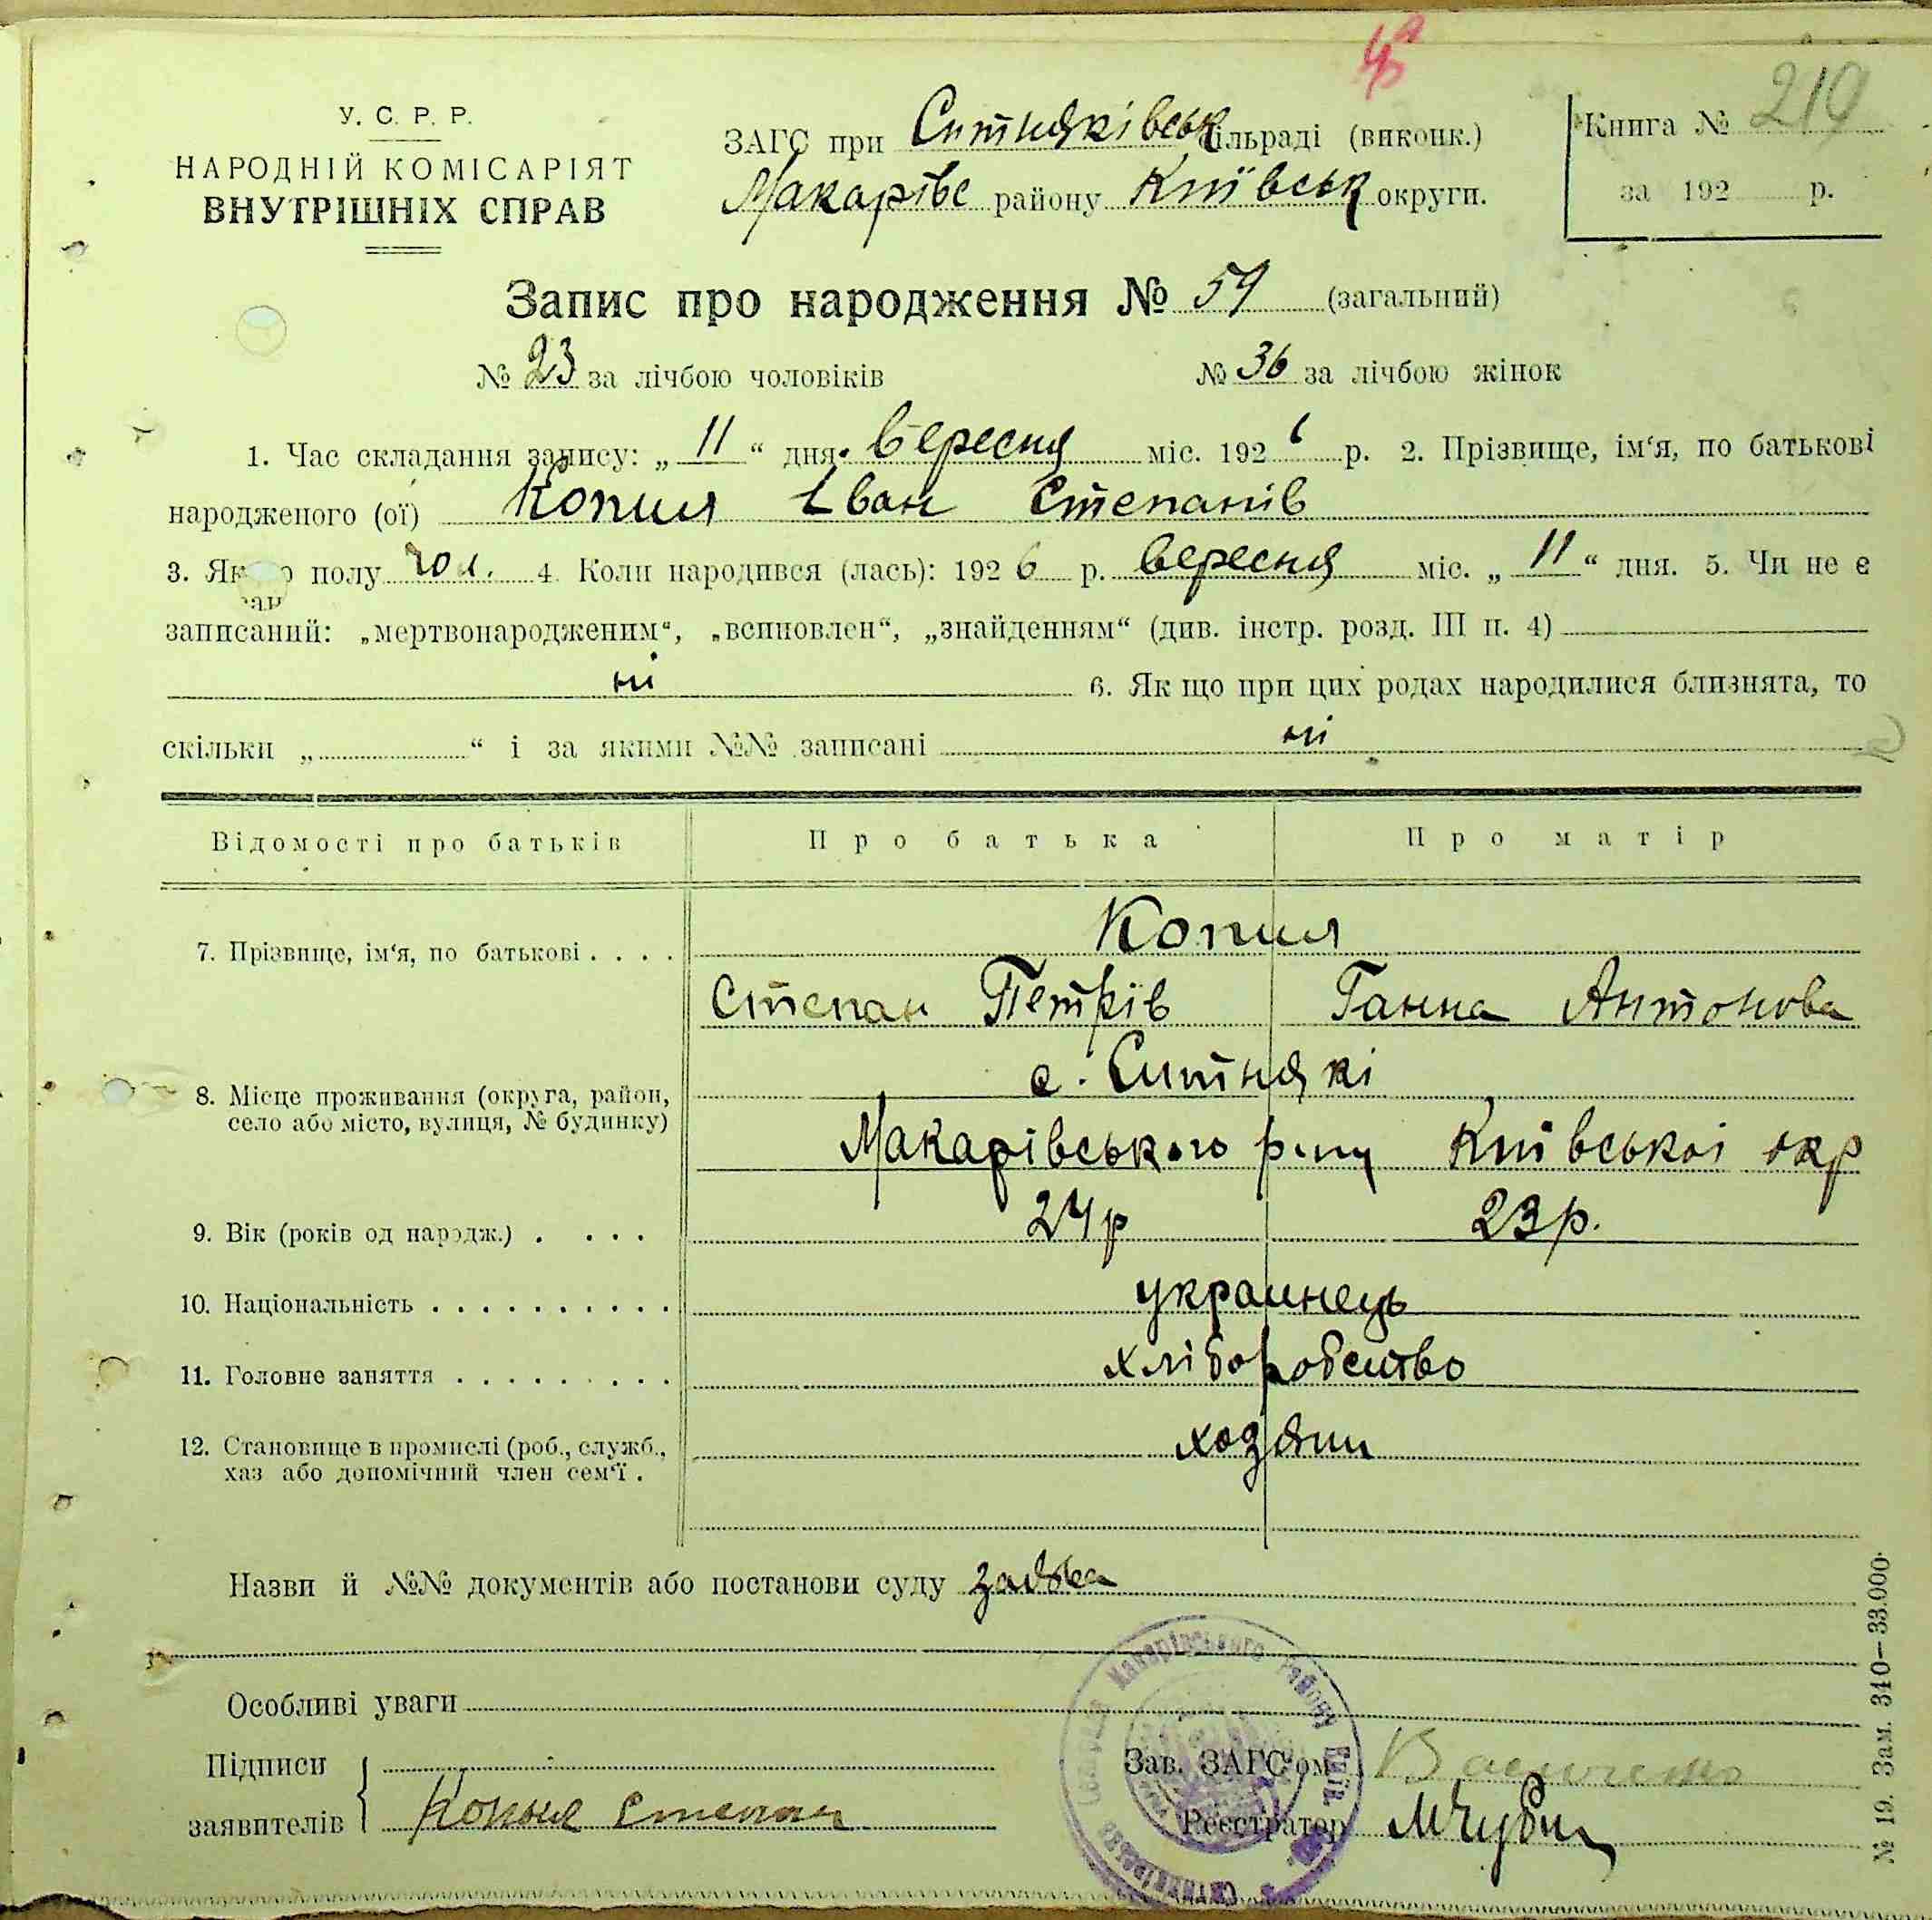 210
У. С. Р. Р.
НАРОДНІЙ КОМІСАРІЯТ
ВНУТРІШНІХ СПРАВ
ЗАГС при Ситняківськ сільраді (виконк.)
Макарівс району Київськ округи.
Книга №
за 192 р.
Запис про народження № 59 (загальний)
№ 23 за лічбою чоловіків № 36 за лічбою жінок
1. Час складання запису: „ 11 “ дня вересня міс. 192 6 р. 2. Прізвище, ім‘я, по батькові
народженого (ої) Копил Іван Степанів
3. Як о полу чол. 4. Коли народився (лась): 192 6 р. вересня міс. „ 11 “ дня. 5. Чи не є
записаний: „мертвонародженим“, „всиновлен“, „знайденням“ (див. інстр. розд. III п. 4)
ні 6. Як що при цих родах народилися близнята, то
скільки „ “ і за якими №№ записані ні
Відомості про батьків Про батька Про матір
7. Прізвище, ім‘я, по батькові . . . . Копил
Степан Петрів Ганна Антонова
8. Місце проживання (округа, район,
село або місто, вулиця, № будинку)
с. Ситнякі
Макарівського р-ну Київськоі окр
9. Вік (років од народж.) . . . . 24р 23р.
10. Національність . . . . . . . . . . украинець
11. Головне заняття . . . . . . . . . хліборобство
12. Становище в промислі (роб., служб.,
хаз або допомічний член сем‘ї .
хазяин
Назви й №№ документів або постанови суду заява
Особливі уваги
Підписи
заявителів Копил Степан
Зав. ЗАГС‘ом
Реєстратор МЧуби
№ 19. Зам. 340—33.000.